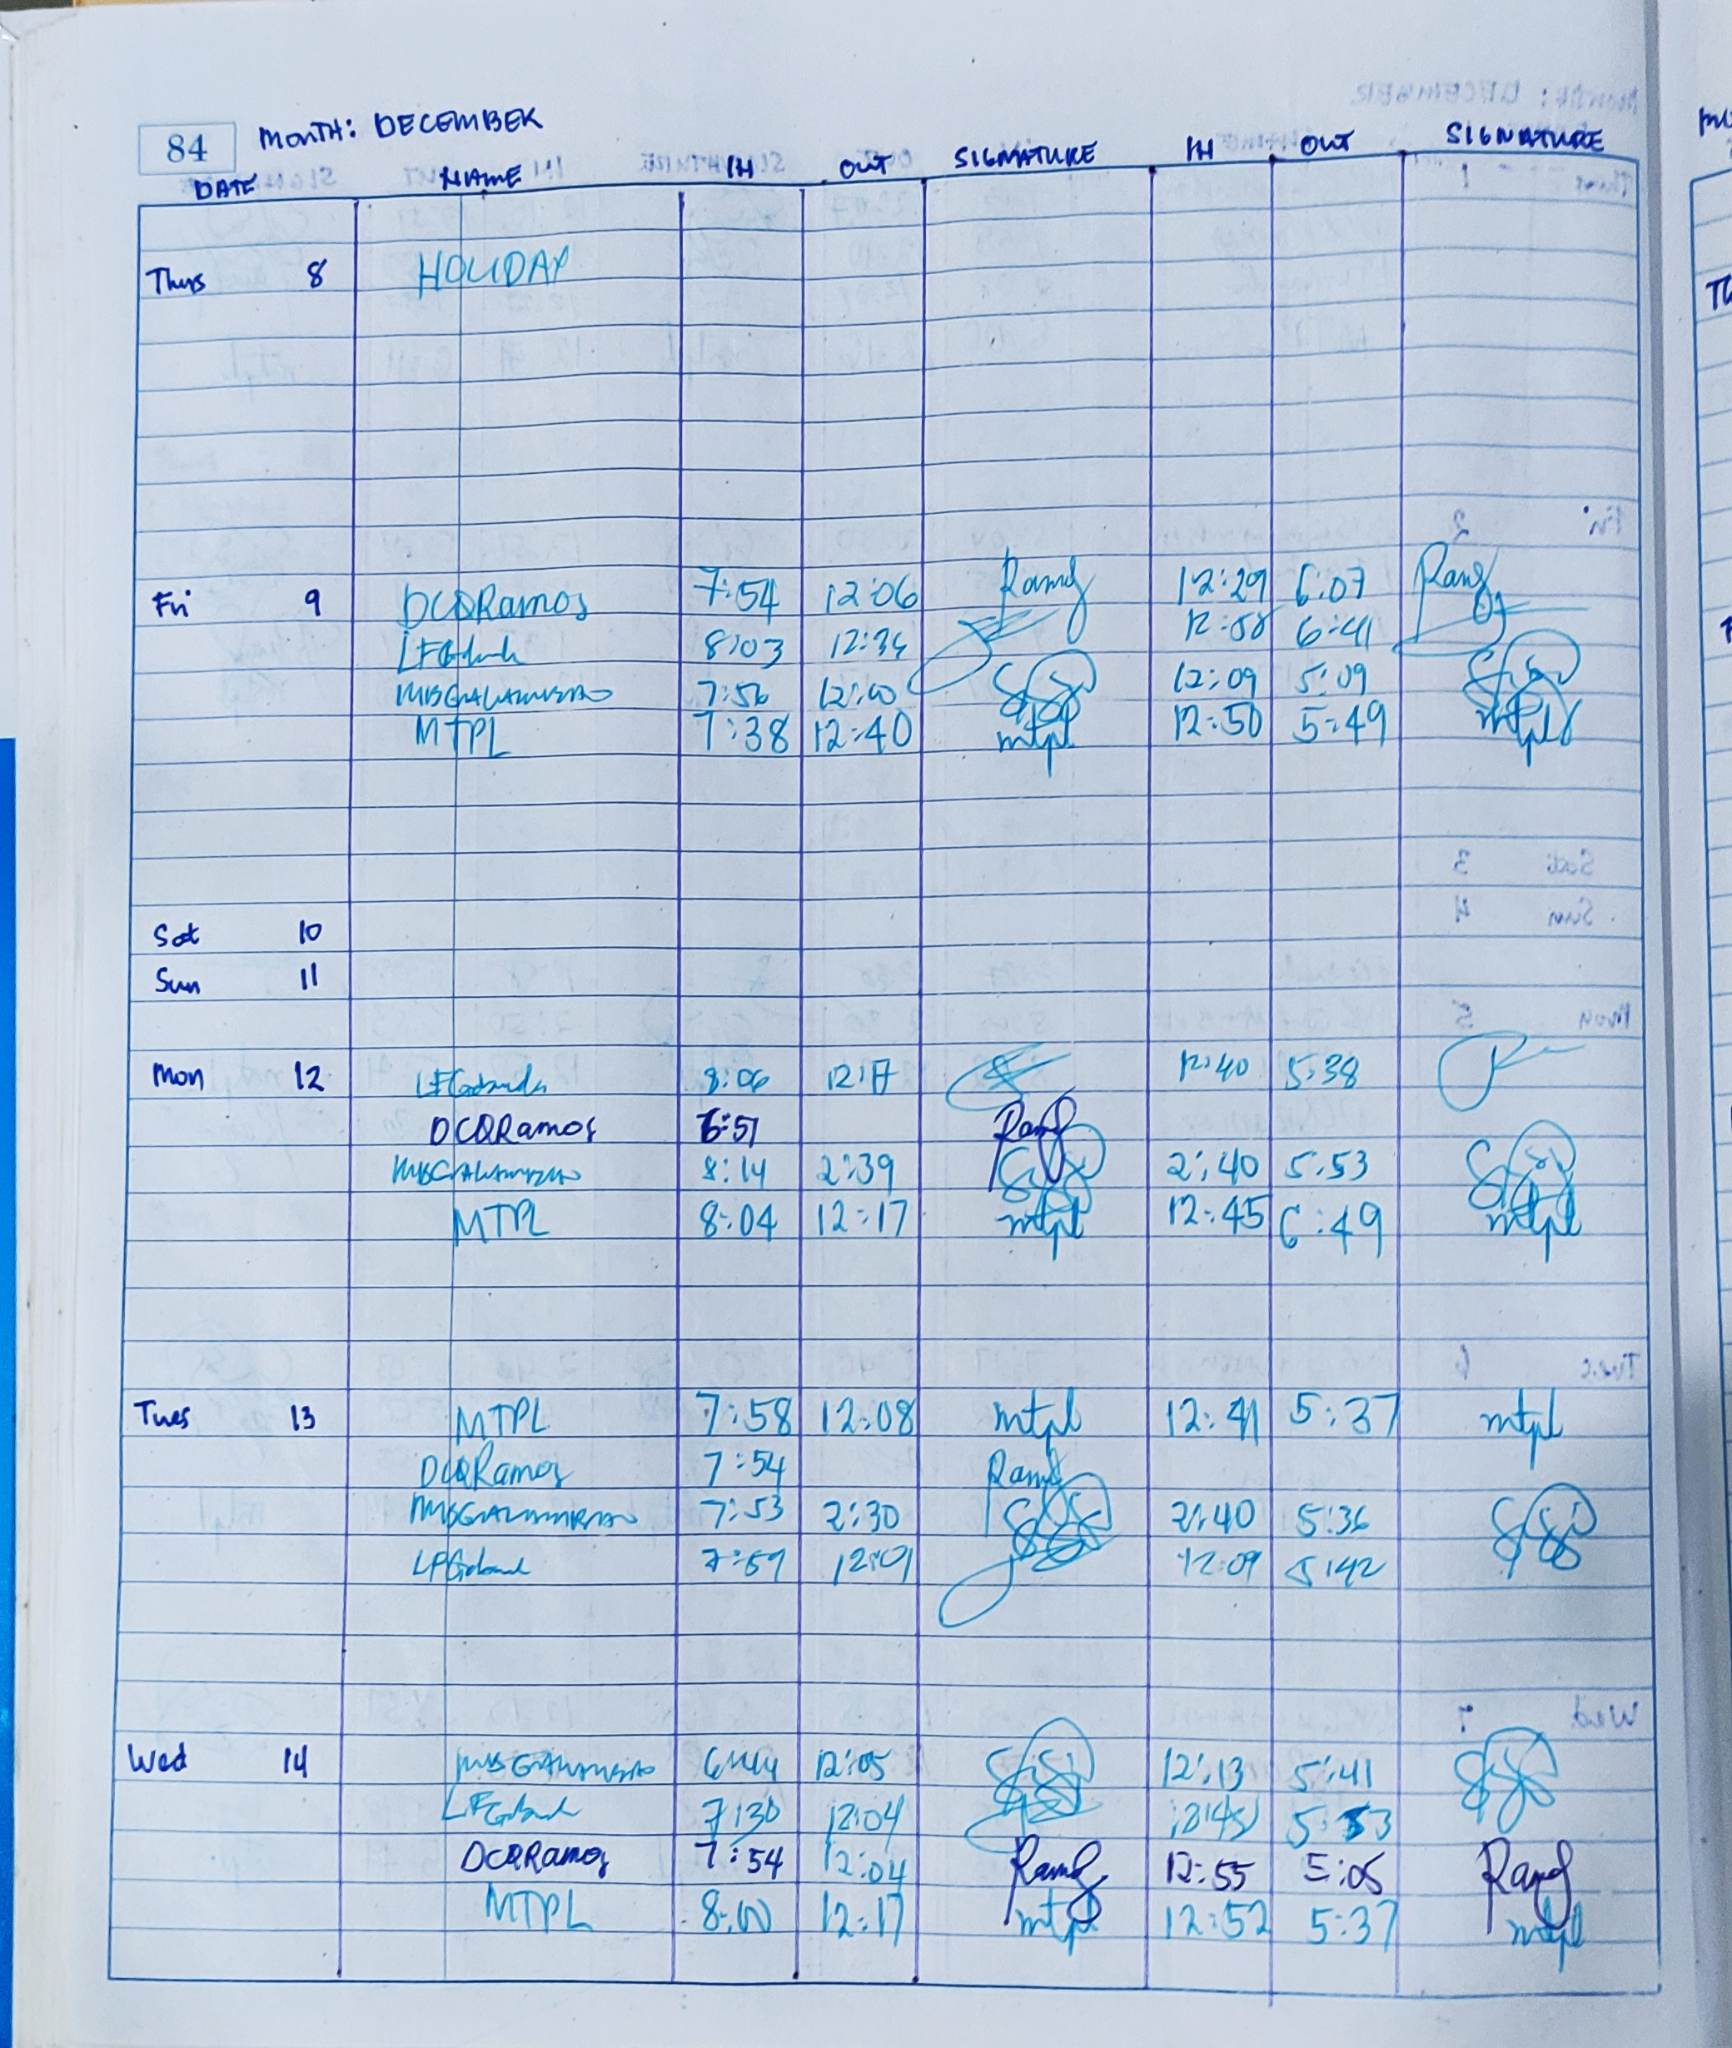 84 MONTH: DECEMBER
DATE NAME IN OUT SIGNATURE IN OUT SIGNATURE
Thurs 8 HOLIDAY
Fri 9 DCQRamos 7:54 12:06 Ramos 12:29 6:07 Ramos
8:03 12:34 12:58 6:41
7:56 12:00 12:09 5:09
MTPL 7:38 12:40 mtpl 12:50 5:49 mtpl
Sat 10
Sun 11
Mon 12 8:06 12:17 12:40 5:38
DCQRamos 6:51 Ramos
8:14 2:39 2:40 5:53
MTPL 8:04 12:17 mtpl 12:45 6:49 mtpl
Tues 13 MTPL 7:58 12:08 mtpl 12:41 5:37 mtpl
DCQRamos 7:54 Ramos
7:53 2:30 2:40 5:36
7:59 12:01 12:09 5:42
Wed 14 12:05 12:13 5:41
7:30 12:04 5:53
DCQRamos 7:54 12:04 Ramos 12:55 5:05 Ramos
MTPL 8:00 12:17 mtpl 12:52 5:37 mtpl